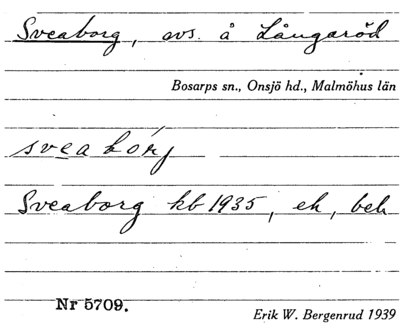 Sveaborg, avs. å Långaröd
Bosarps sn., Onsjö hd., Malmöhus län
Sveaborg kb 1935, ek, beh
Nr 5709.
Erik W. Bergenrud 1939